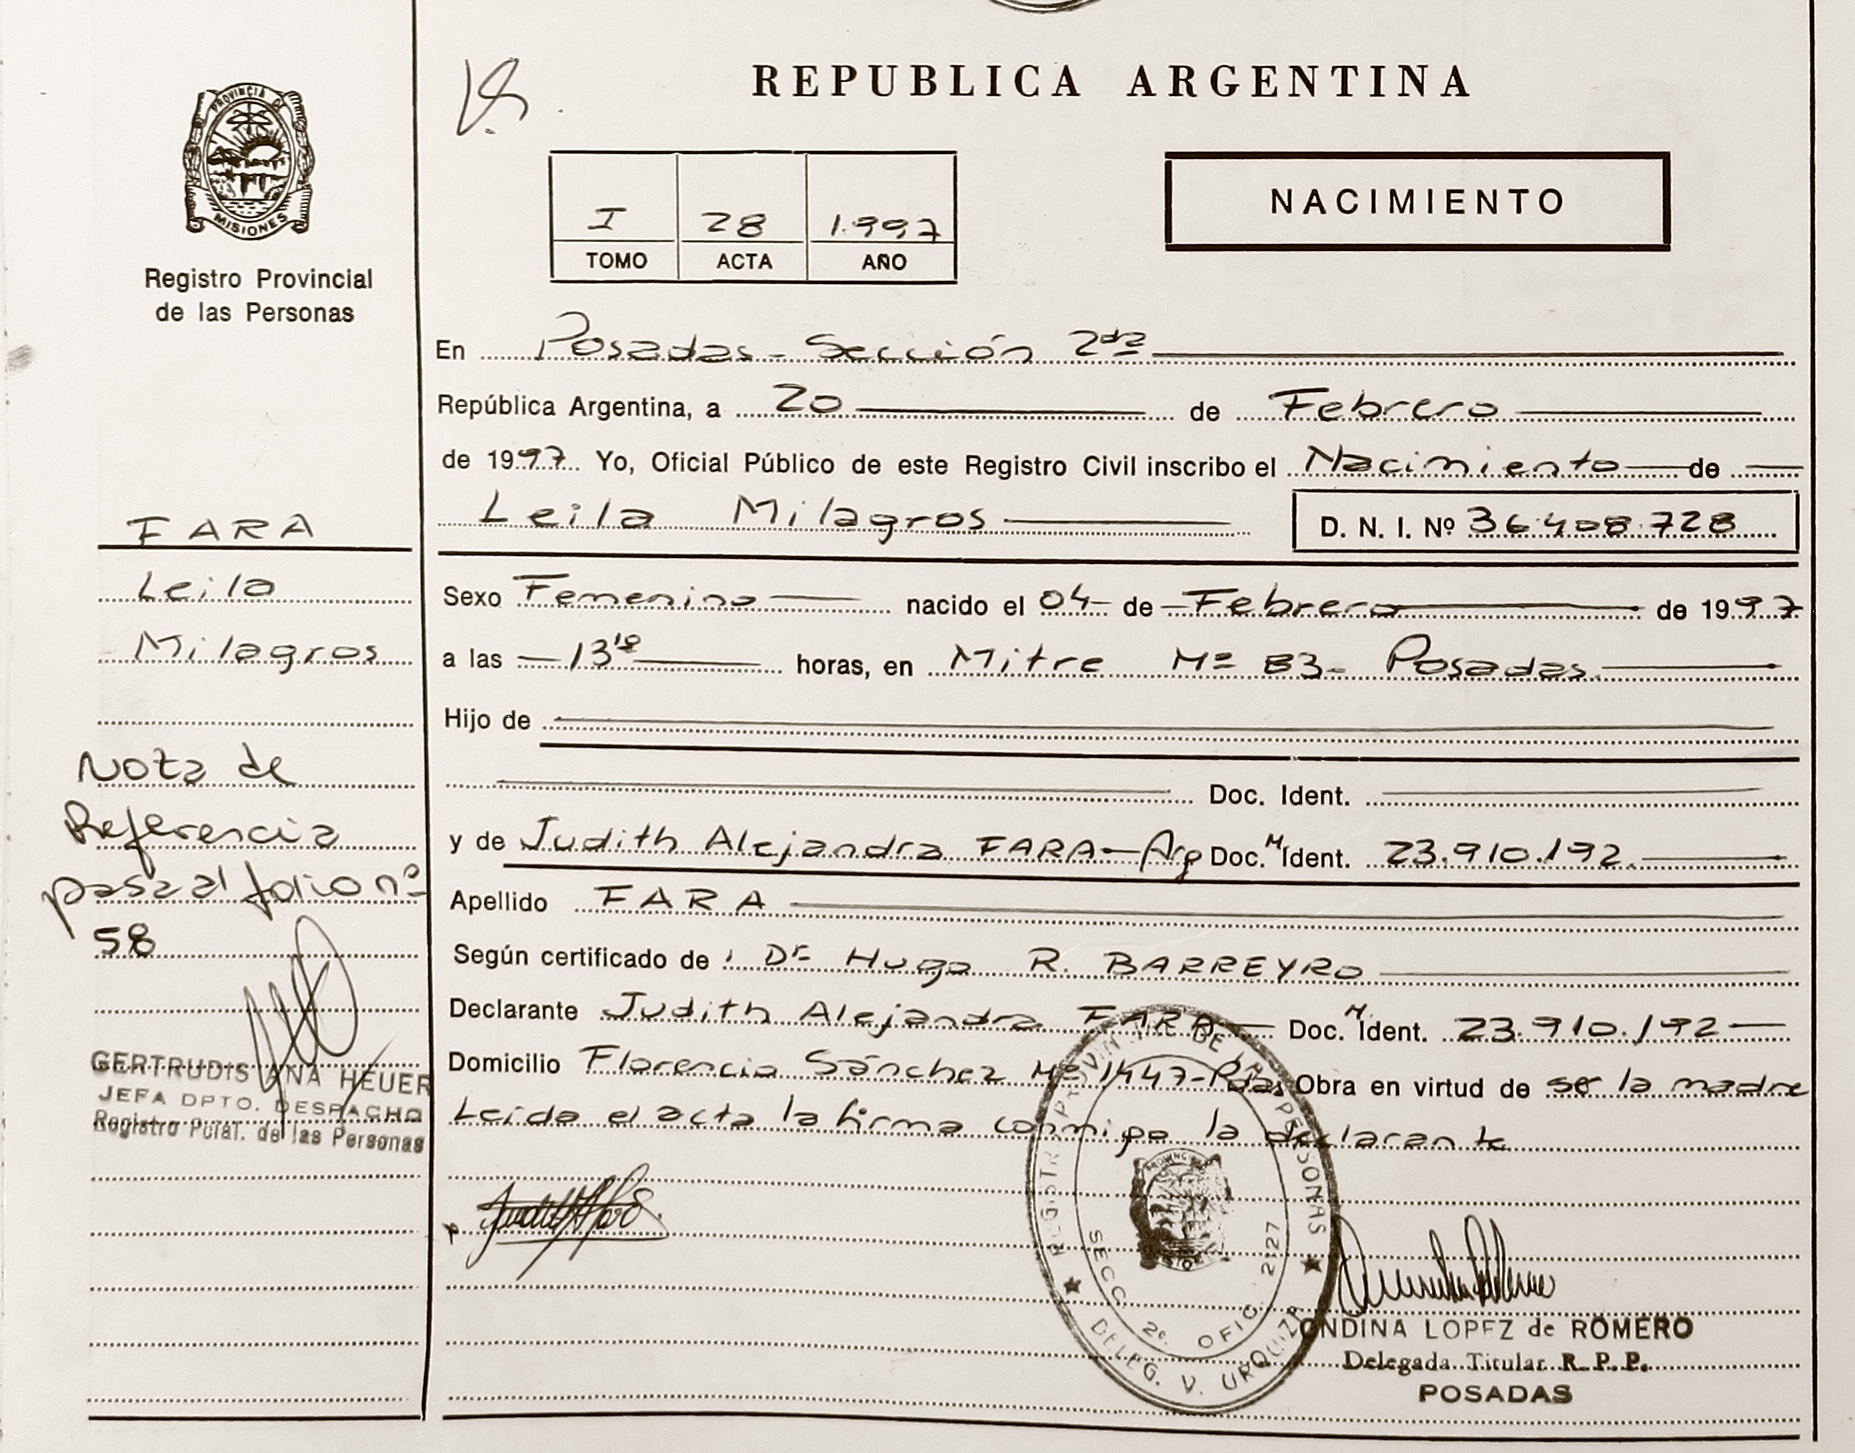 REPUBLICA ARGENTINA
PROVINCIA DE
MISIONES
Registro Provincial
de las Personas
I 28 1.997
TOMO ACTA AÑO
NACIMIENTO
En Posadas - Sección 2da
República Argentina, a 20 de Febrero
de 1997. Yo, Oficial Público de este Registro Civil inscribo el Nacimiento de
Leila Milagros
D. N. I. Nº 36.408.728
FARA
Leila
Milagros
Sexo Femenino nacido el 04 de Febrero de 1997
a las 13 horas, en Mitre Nº 83 - Posadas.
Hijo de
Doc. Ident.
y de Judith Alejandra FARA - Arg Doc. M Ident. 23.910.192.
Apellido FARA
Según certificado de Dr. Hugo R. BARREYRO
Declarante Judith Alejandra FARA Doc. M Ident. 23.910.192
Domicilio Florencio Sánchez Nº 1447 - Pdas, Obra en virtud de ser la madre
Leída el acta la firma conmigo la declarante
Nota de
Referencia
pasa al folio nº
58
GERTRUDIS ANA HEUER
JEFA DPTO. DESPACHO
Registro Pcial. de las Personas
REGISTRO PROVINCIAL DE LAS PERSONAS
SECC. 2º. OFIC. 2227
DELEG. V. URQUIZA
ONDINA LOPEZ de ROMERO
Delegada Titular R. P. P.
POSADAS